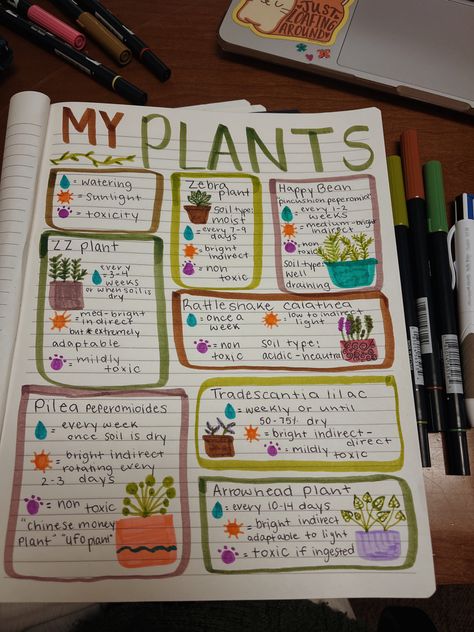 JUST
LOAFING
AROUND
MY PLANTS
= watering
= sunlight
= toxicity
Zebra
Plant
soil type:
moist
= every 7-9
days
= bright
indirect
= non
toxic
Happy Bean
(pincushion peperomia)
= every 1-2
weeks
= medium-bright
indirect
= non
toxic
soil type:
well
draining
ZZ plant
= every
3-4
weeks
or when soil is
dry
= med-bright
indirect
but *extremely
adaptable
= mildly
toxic
Rattlesnake calathea
= once a
week
= low to indirect
light
= non
toxic
soil type:
acidic-neautral
Pilea peperomioides
= every week
once soil is dry
= bright indirect
rotating every
2-3 days
= non toxic
"chinese money
plant" "ufo plant"
Tradescantia lilac
= weekly or until
50-75% dry
= bright indirect-
direct
= mildly
toxic
Arrowhead plant
= every 10-14 days
= bright indirect
adaptable to light
= toxic if ingested